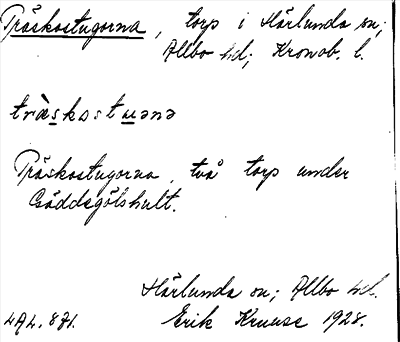 Träskostugorna, torp i Härlunda sn;
Allbo hd; Kronob. l.
tràskostuənə
Träskostugorna, två torp under
Gäddegölshult.
Härlunda sn; Allbo hd.
Erik Kruuse 1928.